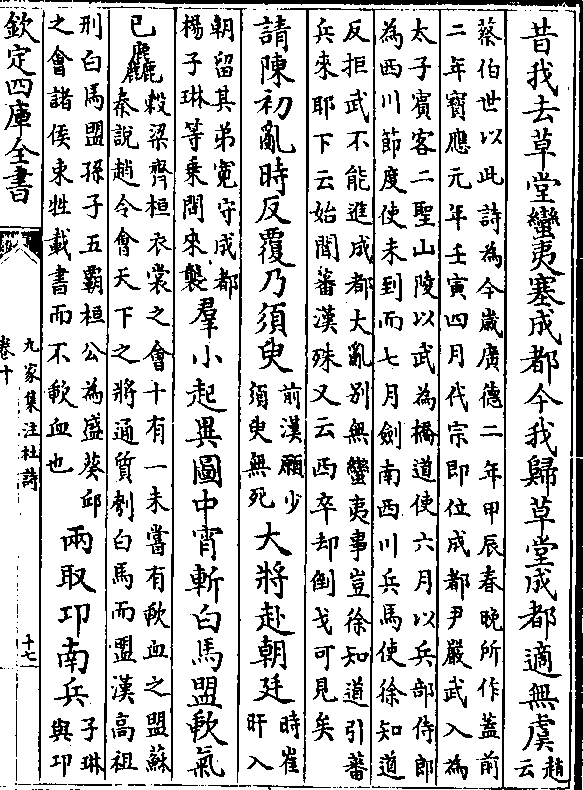 昔我去草堂蠻夷塞成都今我歸草堂成都適無虞趙云
蔡伯世以此詩為今歲廣德二年甲辰春晚所作蓋前
二年寶應元年壬寅四月代宗即位成都尹嚴武入為
太子賓客二聖山陵以武為橋道使六月以兵部侍郎
為西川節度使未到而七月劍南西川兵馬使徐知道
反拒武不能進成都大亂別無蠻夷事豈徐知道引蕃
兵來耶下云始聞蕃漢殊又云西卒却倒戈可見矣
請陳初亂時反覆乃須臾前漢願少須臾無死大將赴朝廷時崔旰入
朝留其弟寛守成都楊子琳等乗間來襲羣小起異圖中宵斬白馬盟歃氣
已麤穀梁齊桓衣裳之會十有一未嘗有歃血之盟蘇秦說趙令會天下之將通質刳白馬而盟漢高祖
刑白馬盟孫子五霸桓公為盛葵邱之會諸侯束牲載書而不歃血也兩取邛南兵子琳與邛
欽定四庫全書
九家集注杜詩
卷十
十七